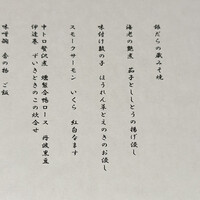 銀だらの蔵みそ焼
海老の艶煮　茄子とししとうの揚げ浸し
味付け数の子　ほうれん草とえのきのお浸し
スモークサーモン　いくら　紅白なます
中トロ贅沢煮　燻製合鴨ロース　丹波黒豆
伊達巻　ずいきときのこの炊合せ
味噌鯛　香の物　ご飯